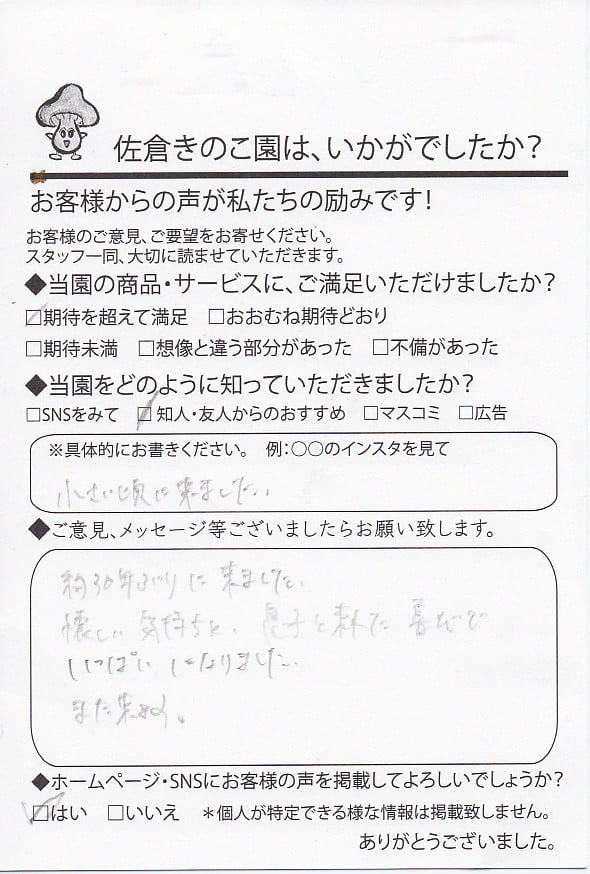 佐倉きのこ園は、いかがでしたか？
お客様からの声が私たちの励みです！
お客様のご意見、ご要望をお寄せください。
スタッフ一同、大切に読ませていただきます。
◆当園の商品・サービスに、ご満足いただけましたか？
☑期待を超えて満足 □おおむね期待どおり
□期待未満 □想像と違う部分があった □不備があった
◆当園をどのように知っていただきましたか？
□SNSをみて ☑知人・友人からのおすすめ □マスコミ □広告
※具体的にお書きください。 例：〇〇のインスタを見て
小さい頃に来ました。
◆ご意見、メッセージ等ございましたらお願い致します。
約30年ぶりに来ました。
懐しい気持ちと、息子と来れた喜びで
いっぱいになりました。
また来ます。
◆ホームページ・SNSにお客様の声を掲載してよろしいでしょうか？
☑はい □いいえ ＊個人が特定できる様な情報は掲載致しません。
ありがとうございました。